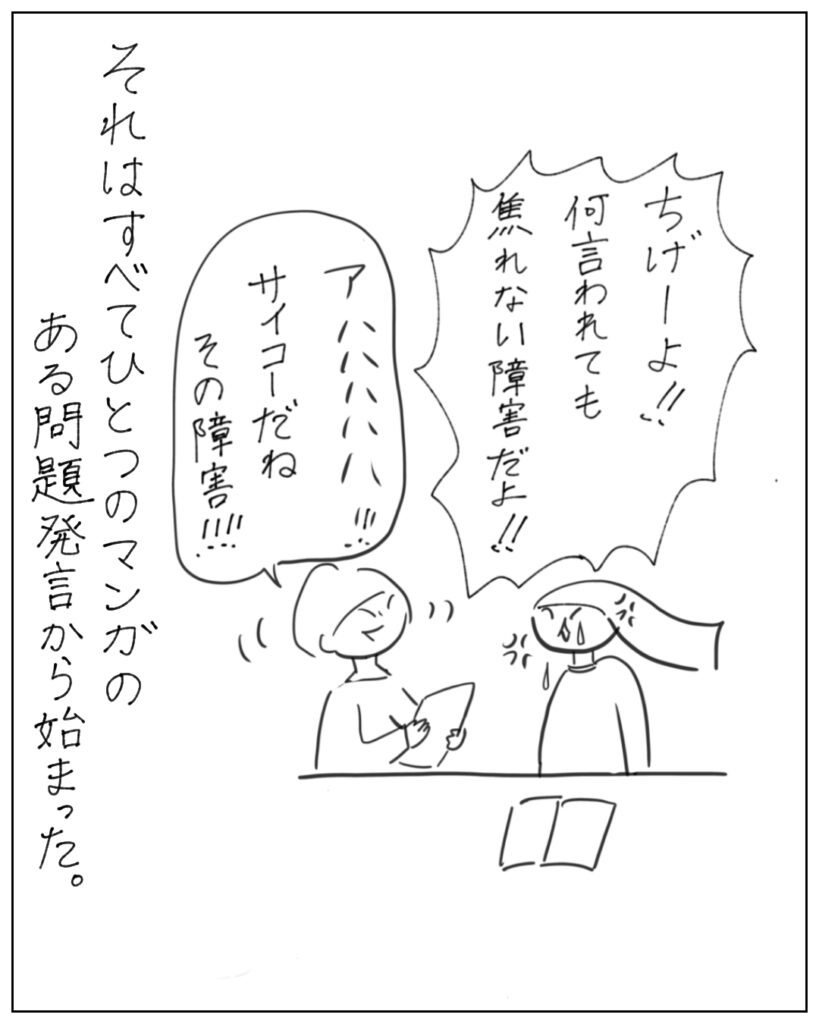 ちげーよ!!
何言われても
焦れない障害だよ!!
アハハハハハ!!!
サイコーだね
その障害!!!!
それはすべてひとつのマンガの
ある問題発言から始まった。